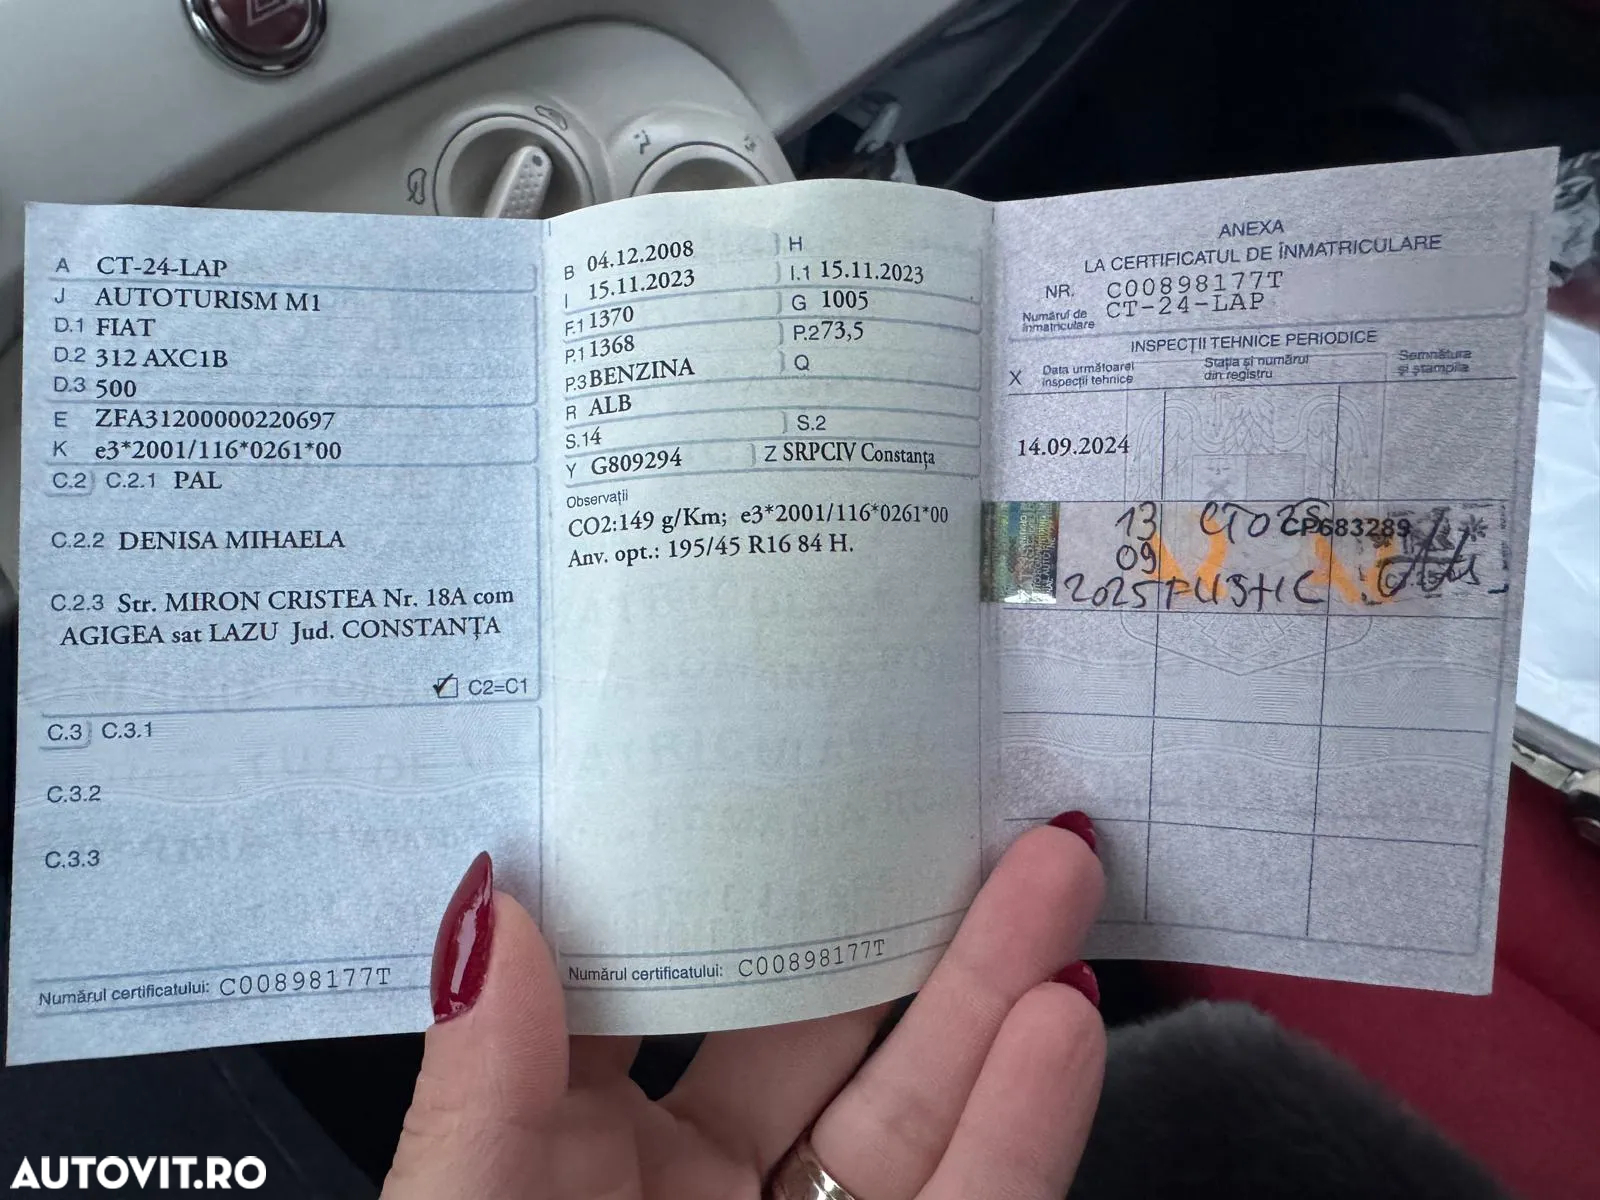 A CT-24-LAP
J AUTOTURISM M1
D.1 FIAT
D.2 312 AXC1B
D.3 500
E ZFA31200000220697
K e3*2001/116*0261*00
C.2 C.2.1 PAL
C.2.2 DENISA MIHAELA
C.2.3 Str. MIRON CRISTEA Nr. 18A com
AGIGEA sat LAZU Jud. CONSTANȚA
C2=C1
C.3 C.3.1
C.3.2
C.3.3
Numărul certificatului: C00898177T
B 04.12.2008 H
I 15.11.2023 I.1 15.11.2023
F.1 1370 G 1005
P.1 1368 P.2 73,5
P.3 BENZINA Q
R ALB
S.1 4 S.2
Y G809294 Z SRPCIV Constanța
Observații
CO2:149 g/Km; e3*2001/116*0261*00
Anv. opt.: 195/45 R16 84 H.
Numărul certificatului: C00898177T
ANEXA
LA CERTIFICATUL DE ÎNMATRICULARE
NR. C00898177T
Numărul de înmatriculare CT-24-LAP
INSPECȚII TEHNICE PERIODICE
X Data următoarei inspecții tehnice Stația și numărul din registru Semnătura și ștampila
14.09.2024
13 CT025 CP683289
09
2025
AUTOVIT.RO